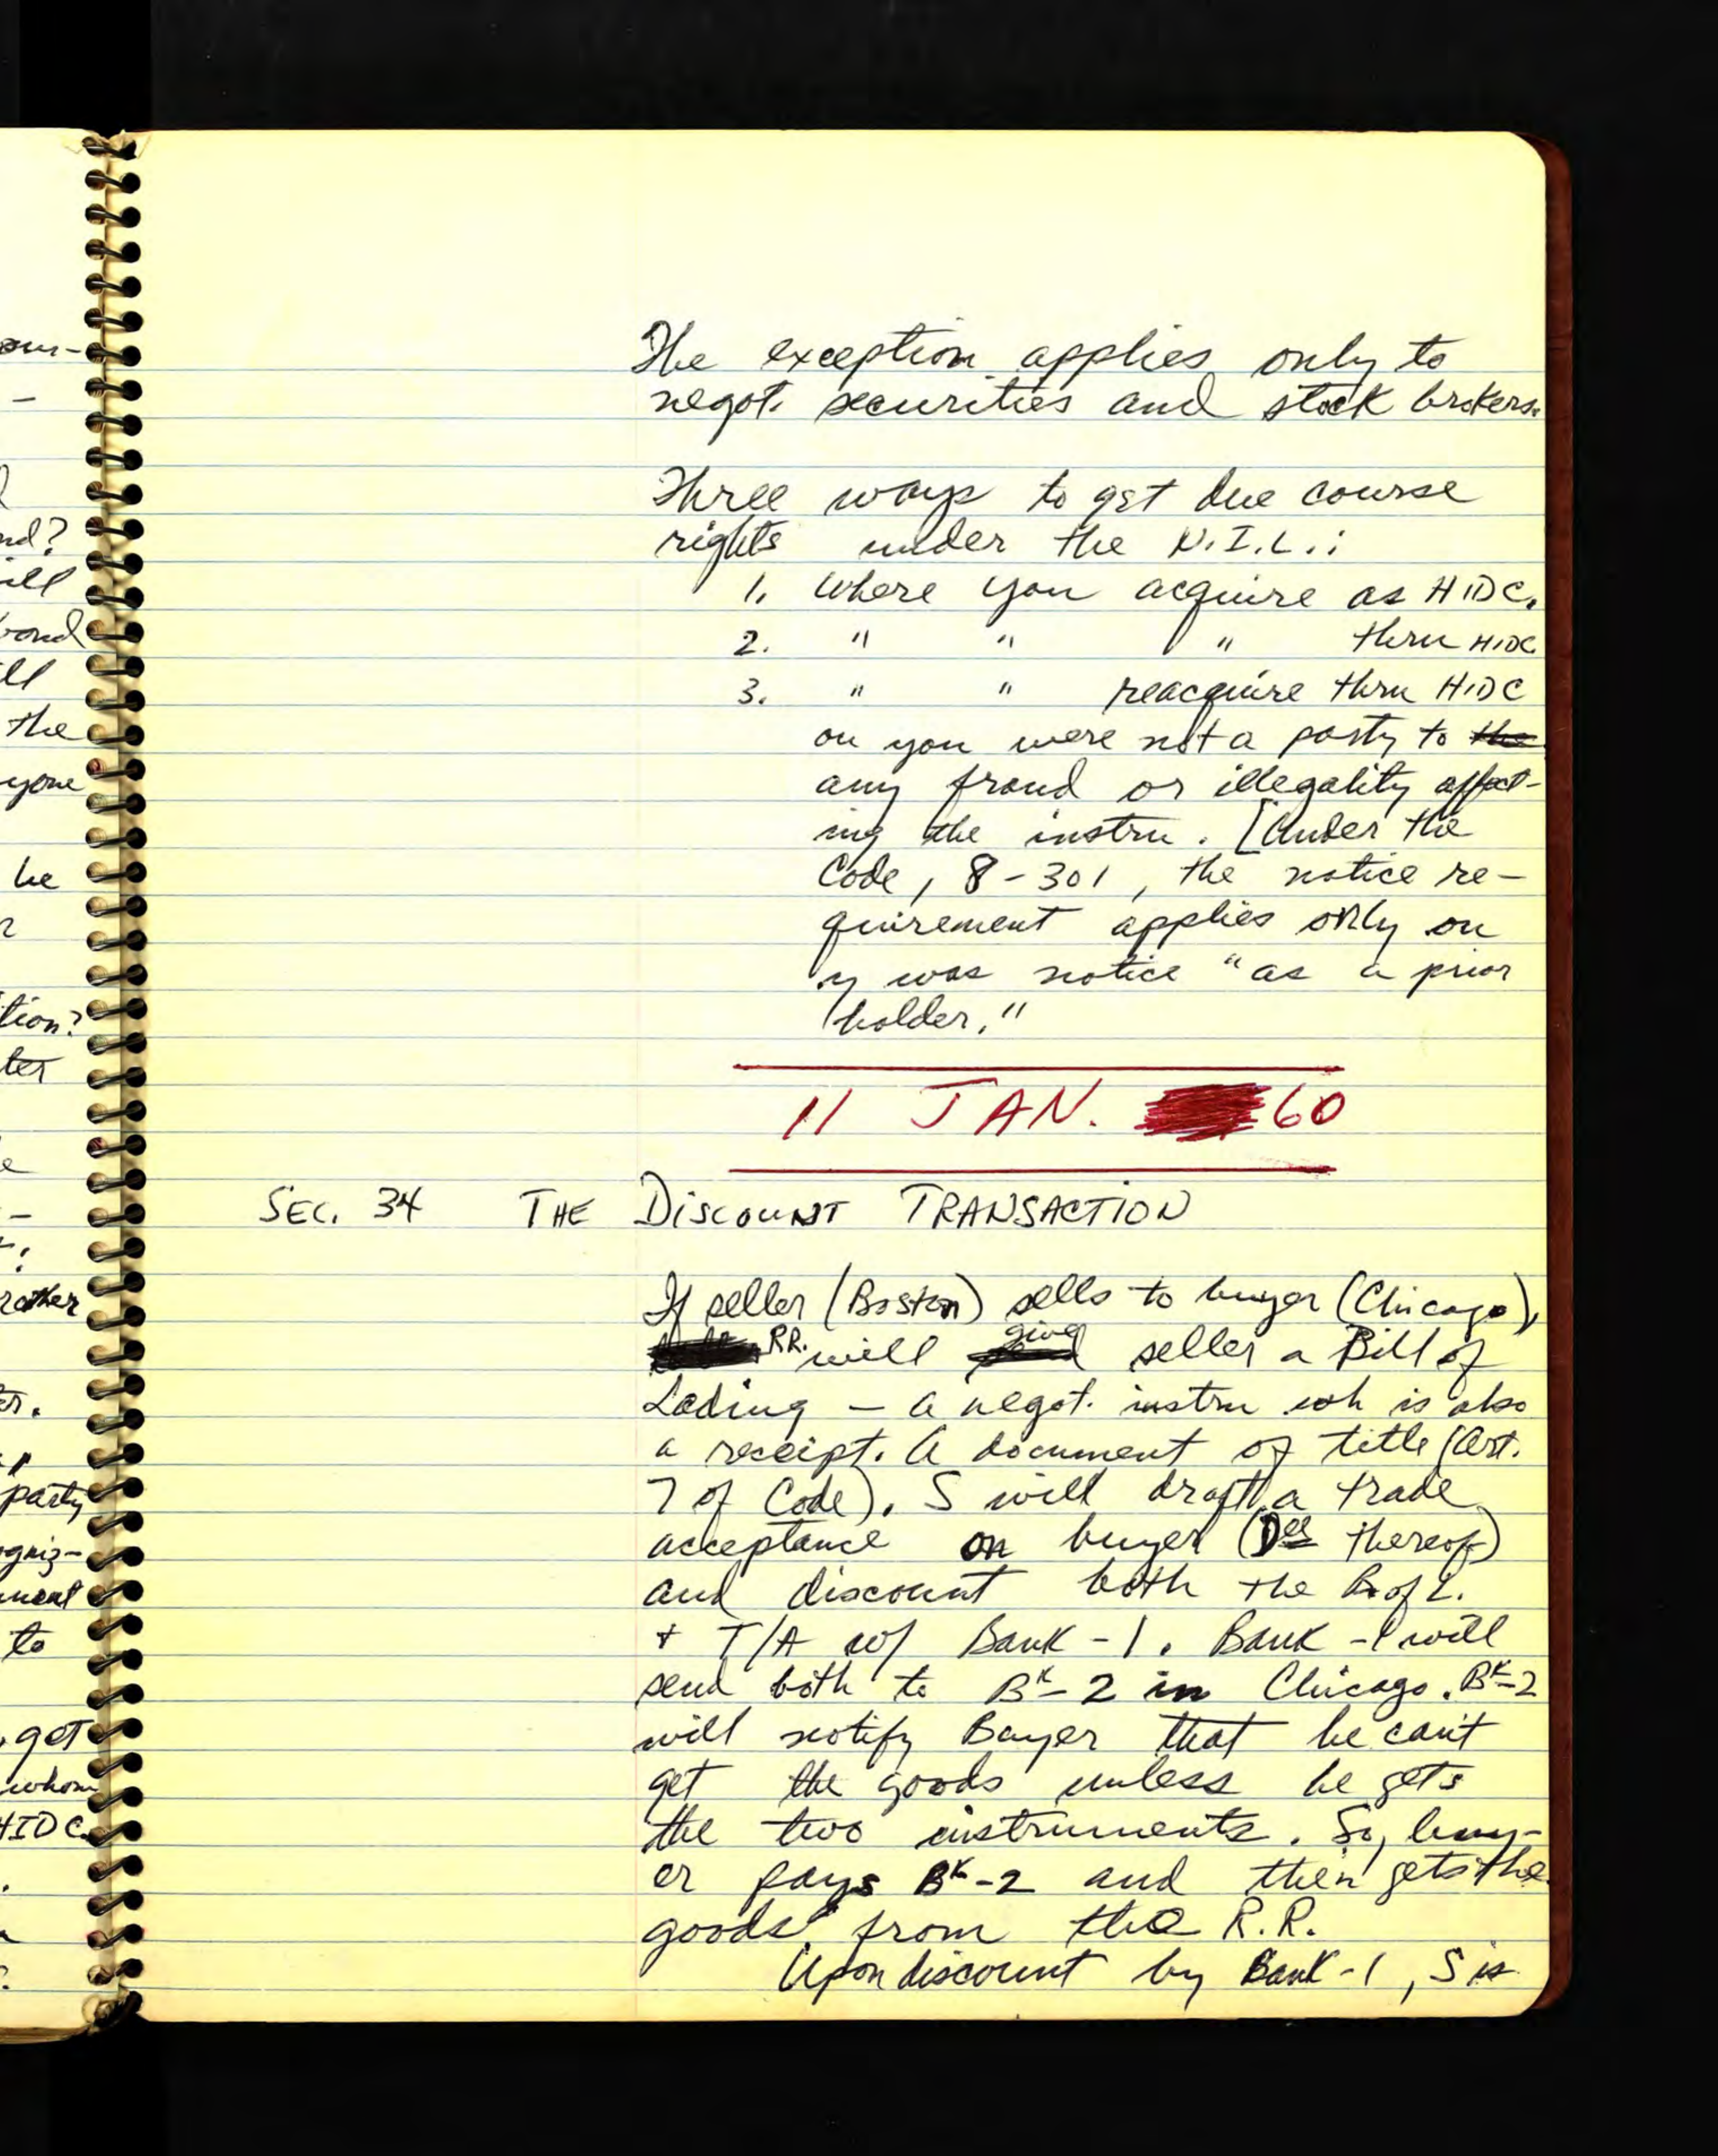 The exception applies only to
negot. securities and stock brokers.
Three ways to get due course
rights under the N.I.L.:
1. Where you acquire as HIDC.
2. " " " thru HIDC
3. " " reacquire thru HIDC
on you were not a party to the
any fraud or illegality affect-
ing the instru. [Under the
Code, 8-301, the notice re-
quirement applies only on
y was notice "as a prior
holder."
11 JAN. 60
SEC. 34 THE DISCOUNT TRANSACTION
If seller (Boston) sells to buyer (Chicago),
RR. will give seller a Bill of
Lading – a negot. instru wh is also
a receipt. A document of title (Art.
7 of Code). S will draft a trade
acceptance on buyer (Dee thereof)
and discount both the B of L.
+ T/A w/ Bank-1. Bank-1 will
send both to Bk-2 in Chicago. Bk-2
will notify Buyer that he can't
get the goods unless he gets
the two instruments. So, buy-
er pays Bk-2 and then gets the
goods from the R.R.
Upon discount by Bank-1, S is
our-
-
nd?
ill
ll
the
yone
he
tion?
ter
rather
er.
party
ogniz-
ment
to
get
whom
HIDC.